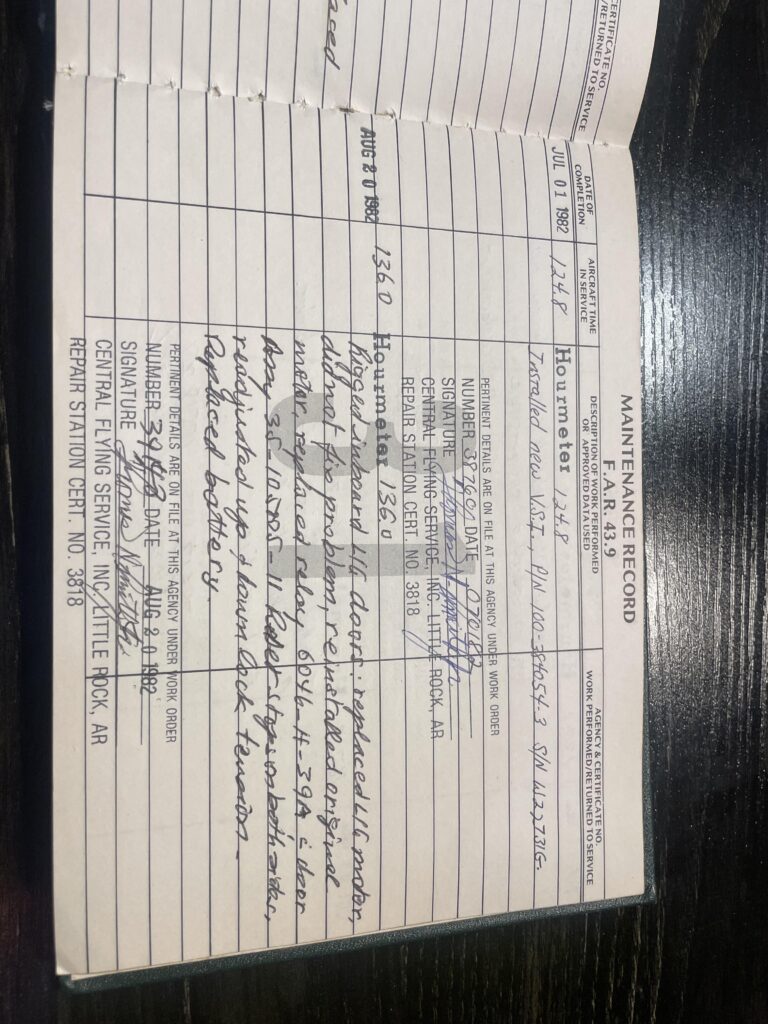 aced
CERTIFICATE NO.
/RETURNED TO SERVICE
MAINTENANCE RECORD
F.A.R. 43.9
DATE OF COMPLETION
AIRCRAFT TIME IN SERVICE
DESCRIPTION OF WORK PERFORMED OR APPROVED DATA USED
AGENCY & CERTIFICATE NO. WORK PERFORMED/RETURNED TO SERVICE
JUL 01 1982 124.8 Hourmeter 124.8
Installed new V.S.I., P/N 100-384054-3 S/N W22731G.
PERTINENT DETAILS ARE ON FILE AT THIS AGENCY UNDER WORK ORDER
NUMBER DATE
SIGNATURE
CENTRAL FLYING SERVICE, INC. LITTLE ROCK, AR
REPAIR STATION CERT. NO. 3818
AUG 20 1982 136.0 Hourmeter 136.0
Rigged inboard L/G doors, replaced L/G motor,
did not fix problem, reinstalled original
motor, replaced relay 6046-H-39A & door
Assy 35-105705-11 on both sides,
readjusted up & down lock tension.
Replaced battery.
PERTINENT DETAILS ARE ON FILE AT THIS AGENCY UNDER WORK ORDER
NUMBER DATE AUG 20 1982
SIGNATURE
CENTRAL FLYING SERVICE, INC. LITTLE ROCK, AR
REPAIR STATION CERT. NO. 3818